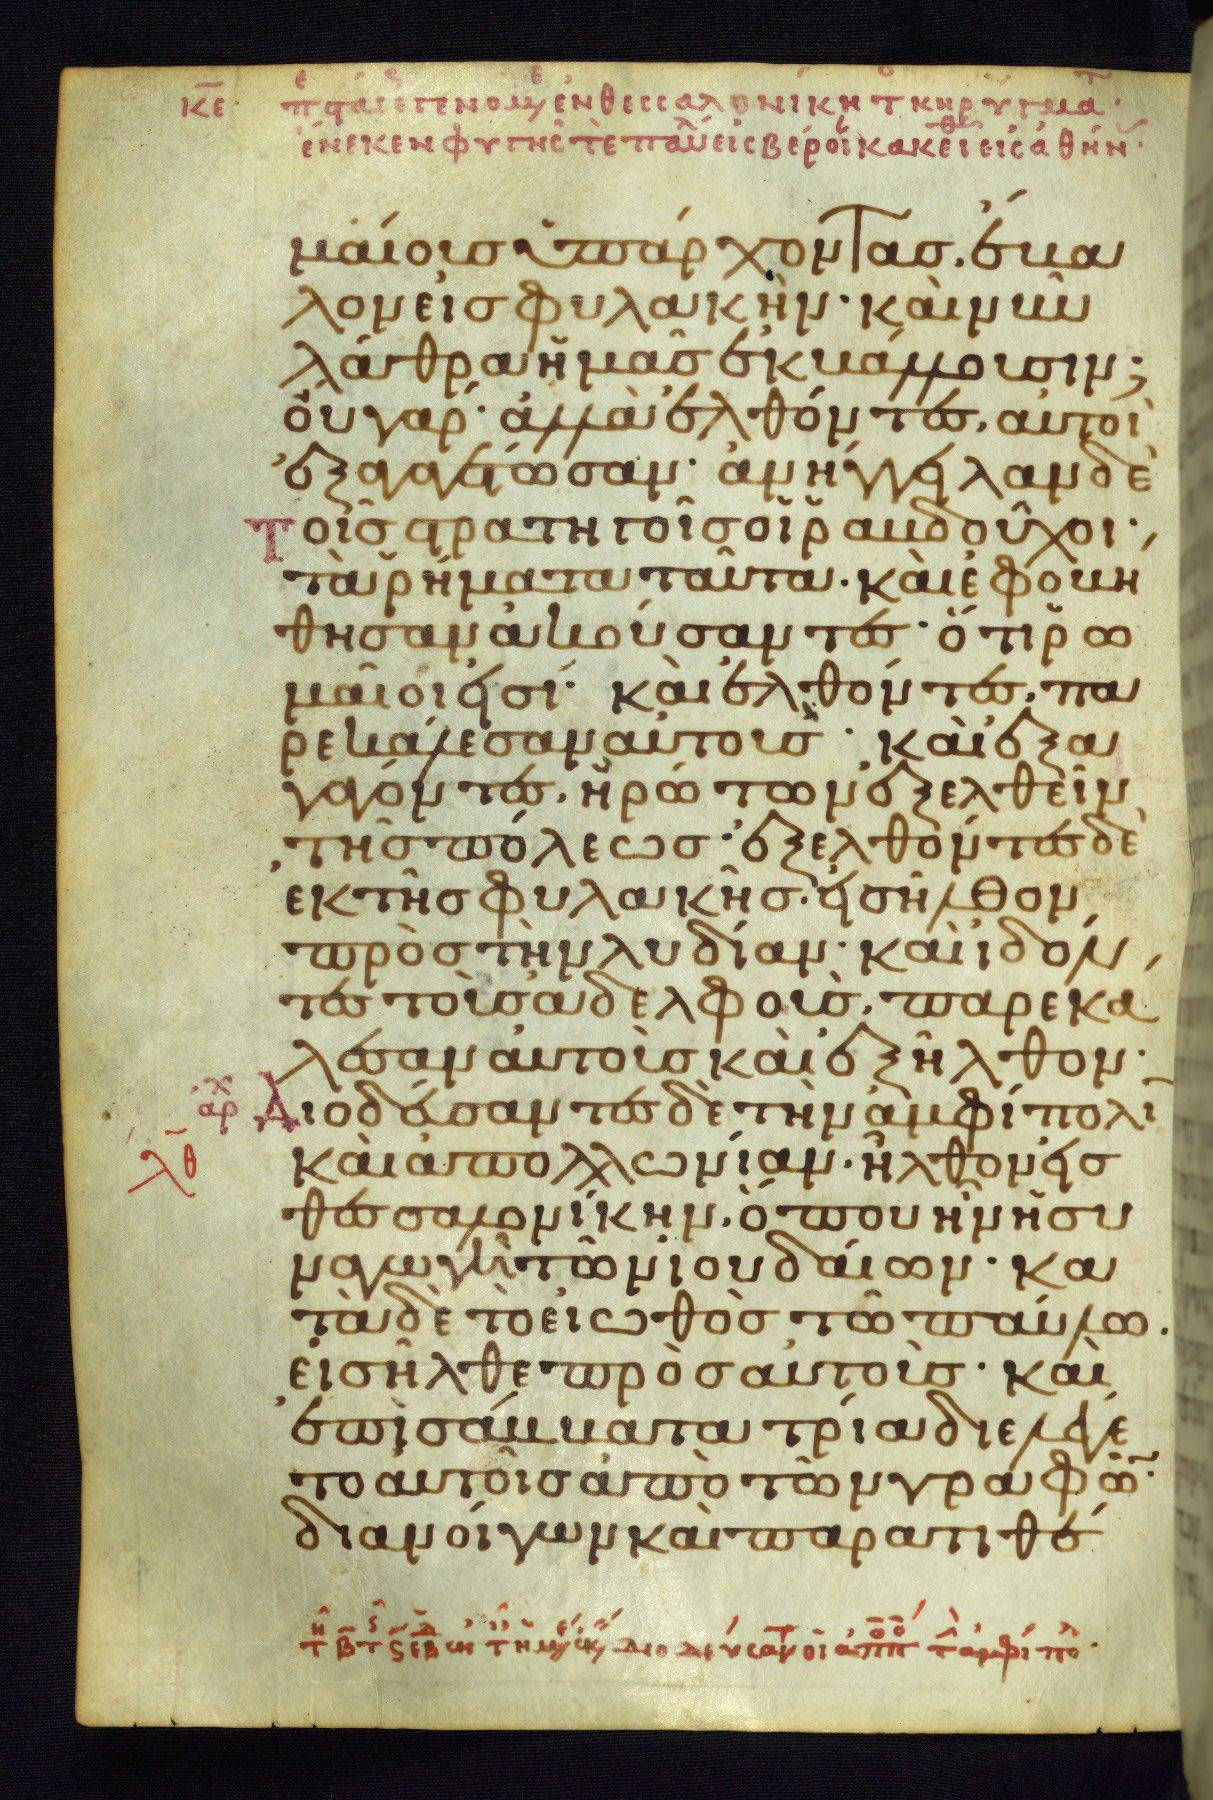 κε· π ϛάσε γενομ ἐν θεσσαλονίκη τ κηρυγμα·
ἕνεκεν φυγῆς τὲ παυλ εἰς βέροι κακεῖθε εἰς ἀθήν·
μαίους ὑπάρχοντας, ἔβα
λον εἰς φυλακὴν· καὶ νῦν
λάθρα ἡμᾶς ἐκβάλλουσιν;
οὐ γάρ· ἀλλὰ ἐλθόντες, αὐτοὶ
ἐξαγαγέτωσαν· ἀνήγγειλαν δὲ
τοῖς στρατηγοῖς οἱ ῥαβδοῦχοι·
τὰ ῥήματα ταῦτα. καὶ ἐφοβη
θησαν ἀκούσαντες· ὅτι ῥω
μαῖοι εἰσί· καὶ ἐλθόντες, πα
ρεκάλεσαν αὐτους· καὶ ἐξα
γαγόντες, ἠρώτων ἐξελθεῖν
τῆς πόλεως· ἐξελθόντες δὲ
ἐκ τῆς φυλακῆς. εἰσῆλθον
πρὸς τὴν λυδίαν· καὶ ἰδόν
τες τοὺς ἀδελφοὺς, παρεκα
λεσαν αὐτοὺς καὶ ἐξῆλθον·
αρχ Διοδεύσαντες δὲ τὴν ἀμφίπολι
λθ καὶ ἀπολλωνίαν. ἦλθον εἰς
θεσσαλονίκην. ὅπου ἦν ἡ συ
ναγωγὴ τῶν ἰουδαίων· κα
τὰ δὲ τὸ εἰωθὸς τῶ παύλω.
εἰσῆλθε πρὸς αὐτοὺς· καὶ
ἐπὶ σάββατα τρία διελέγε
το αὐτοῖς ἀπὸ τῶν γραφῶ·
διανοίγων καὶ παρατιθέ